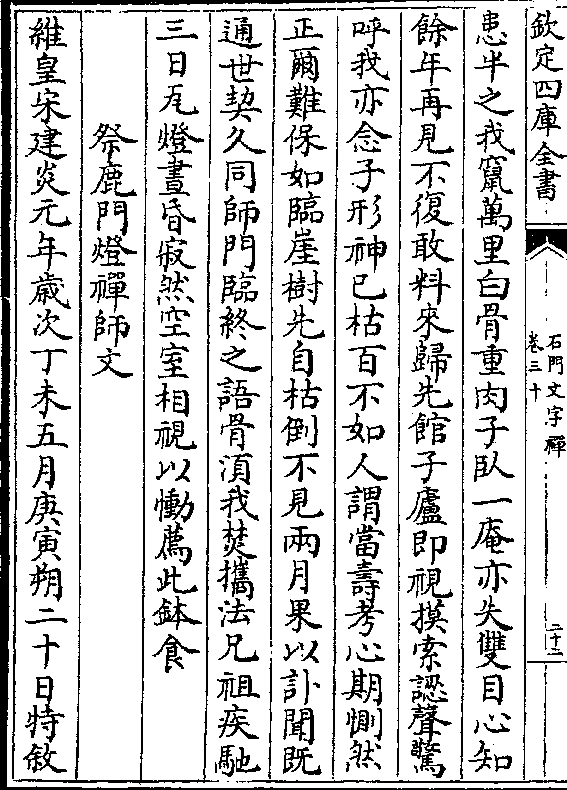 欽定四庫全書
石門文字禪
卷三十
二十二
患半之我竄萬里白骨重肉子臥一庵亦失雙目心知
餘年再見不復敢料來歸先館子廬即視摸索認聲驚
呼我亦念子形神已枯百不如人謂當壽考心期惻然
正爾難保如臨崖樹先自枯倒不見兩月果以訃聞既
通世契久同師門臨終之語骨湏我焚攜法兄祖疾馳
三日瓦燈晝昏寂然空室相視以慟薦此鉢食
祭鹿門燈禪師文
維皇宋建炎元年歳次丁未五月庚寅朔二十日特敘